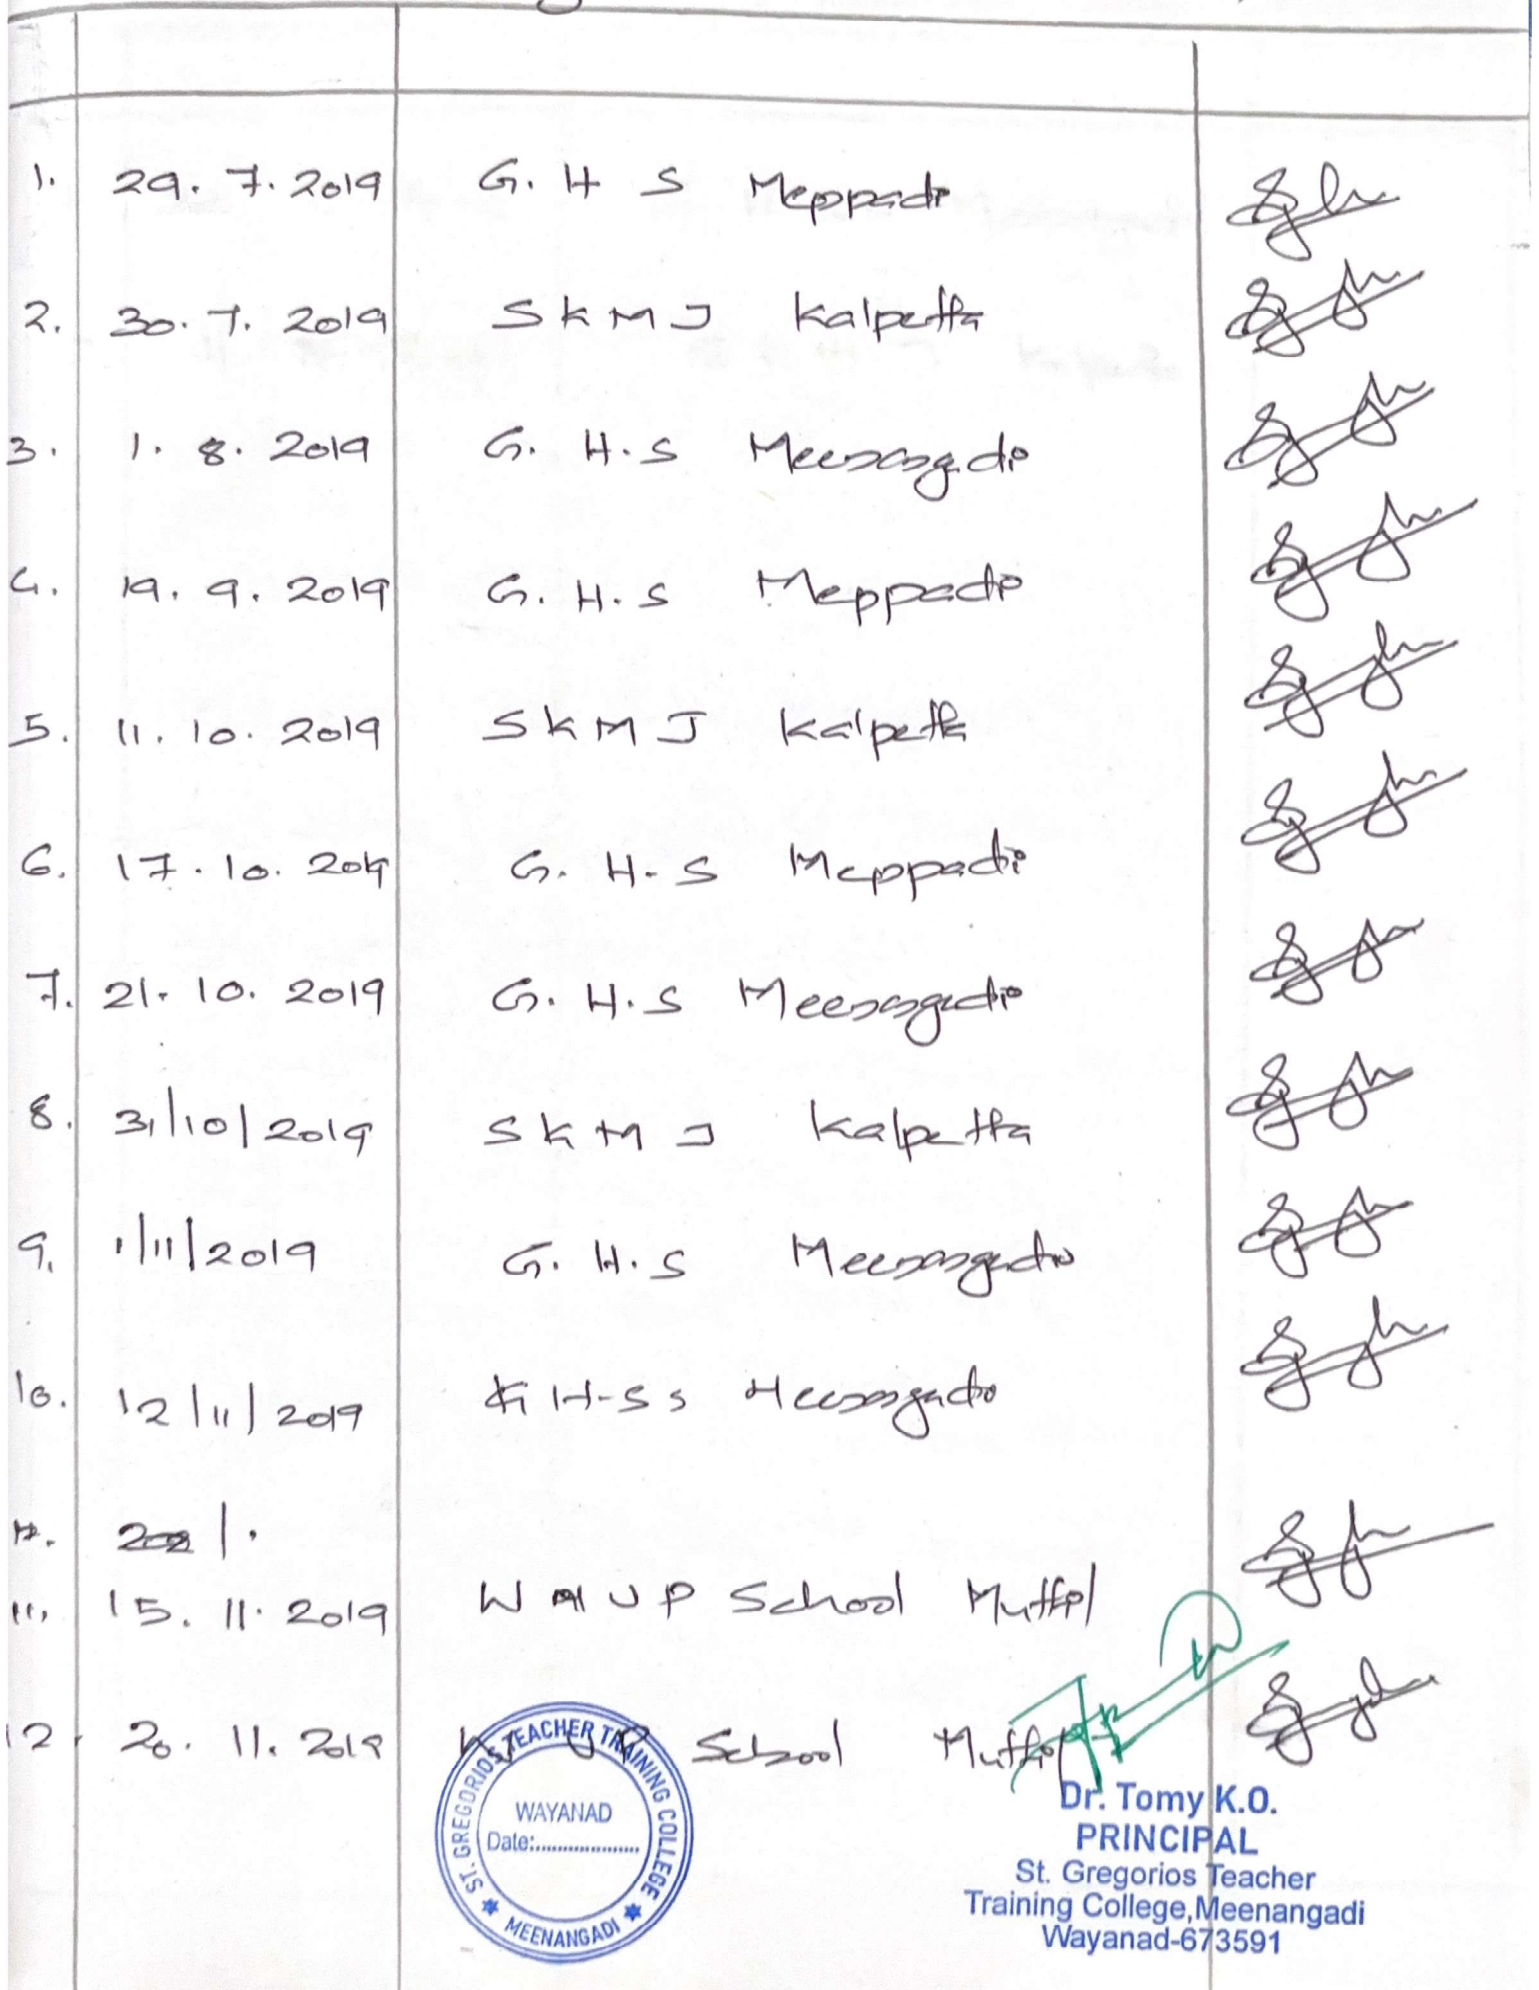 1. 29. 7. 2019 G. H S Meppadi
2. 30. 7. 2019 S K M J Kalpetta
3. 1. 8. 2019 G. H. S Meenangadi
4. 19. 9. 2019 G. H. S Meppadi
5. 11. 10. 2019 S K M J Kalpetta
6. 17. 10. 2019 G. H. S Meppadi
7. 21. 10. 2019 G. H. S Meenangadi
8. 31/10/2019 S K M J Kalpetta
9. 1/11/2019 G. H. S Meenangadi
10. 12/11/2019 G H-S S Meenangadi
11. 15. 11. 2019 W M U P School Muttil
12. 20. 11. 2019 School Muttil
ST. GREGORIOS TEACHER TRAINING COLLEGE
WAYANAD
Date:....................
MEENANGADI
Dr. Tomy K.O.
PRINCIPAL
St. Gregorios Teacher
Training College,Meenangadi
Wayanad-673591